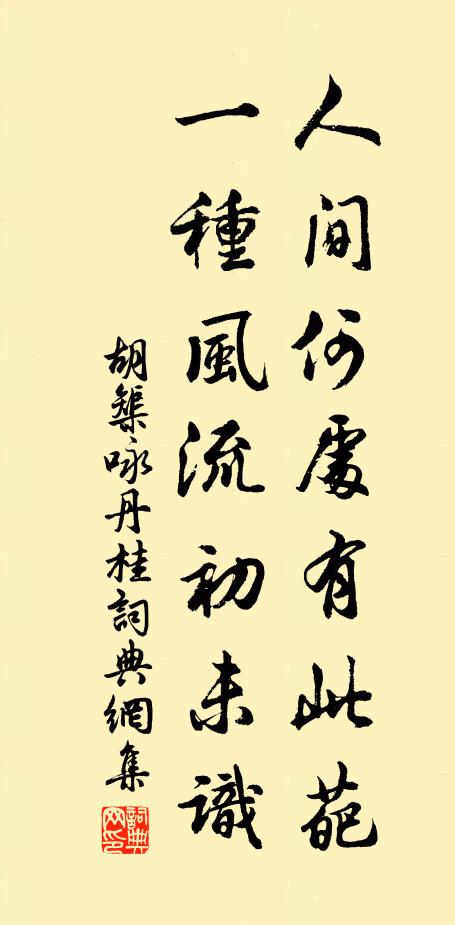 人間何處有此葩
一種風流初未識
胡榘咏丹桂詞典網集
詞典网印